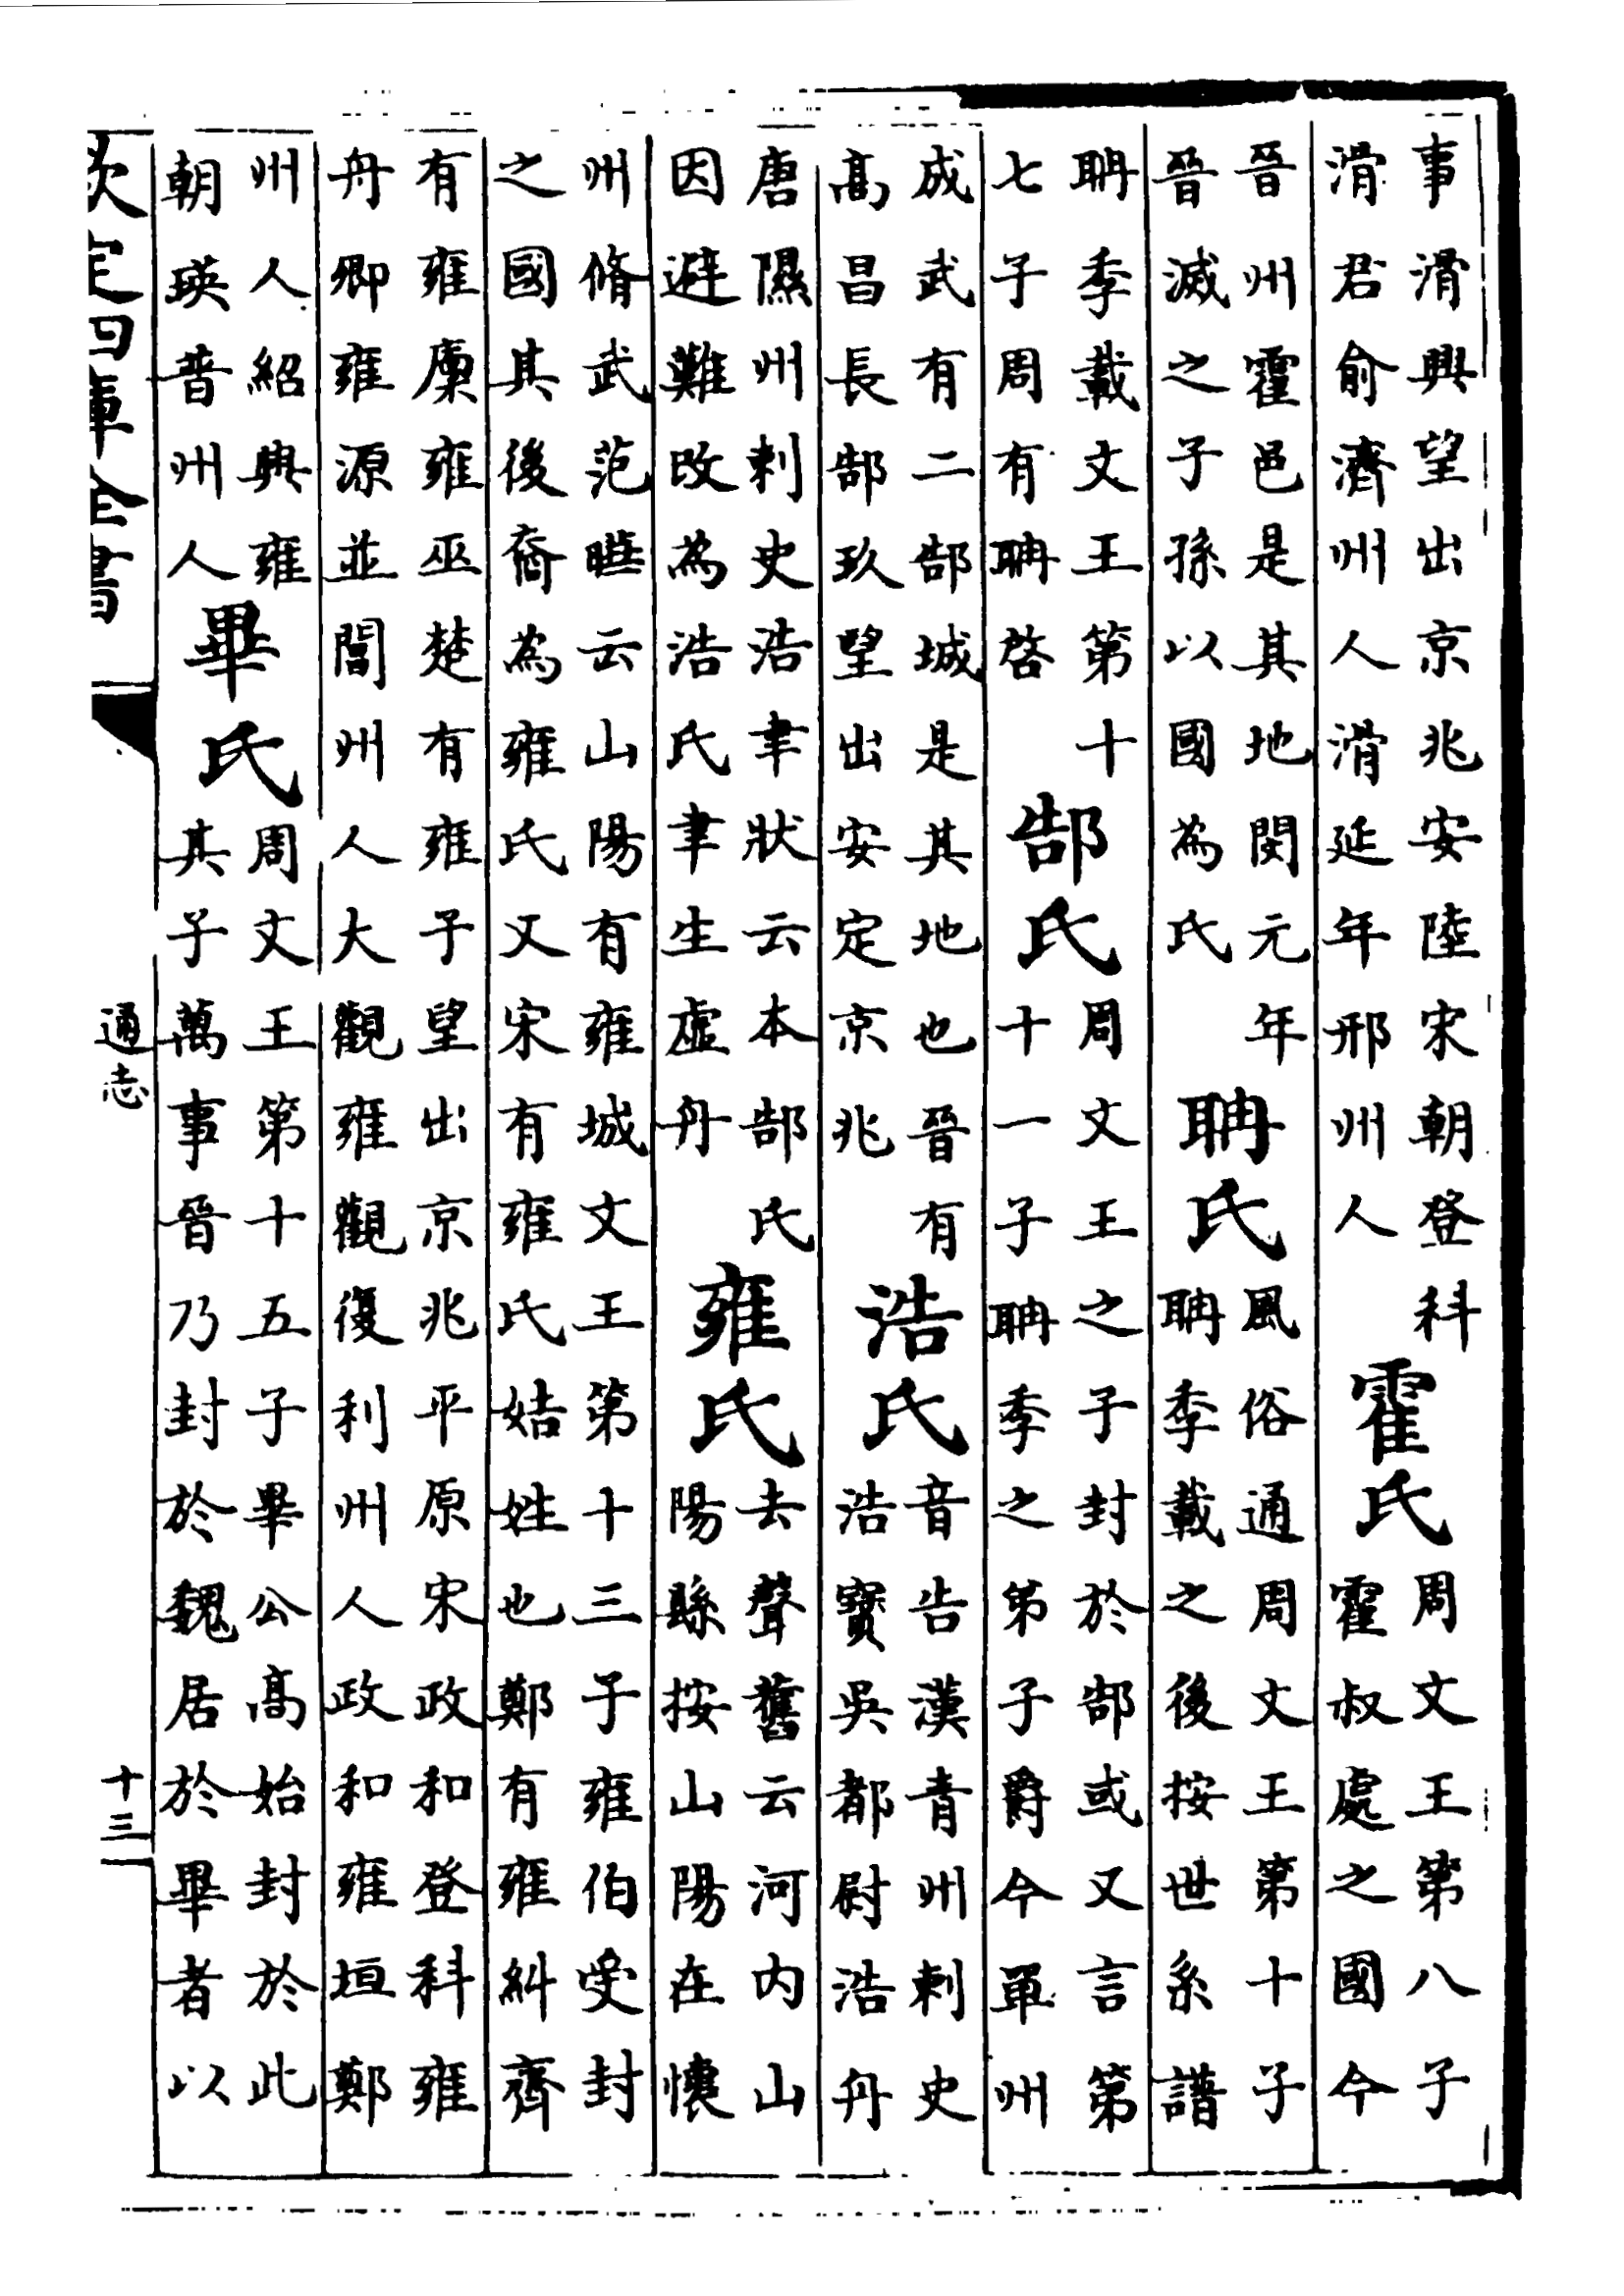 事滑興望出京兆安陸宋朝登科
滑君俞濟州人滑延年邢州人
霍氏
周文王第八子
霍叔處之國今
晉州霍邑是其地閔元年
晉滅之子孫以國為氏
聃氏
風俗通周文王第十子
聃季載之後按世系譜
聃季載文王第十
七子周有聃啓
郜氏
周文王之子封於郜或又言第
十一子聃季之弟子爵今單州
成武有二郜城是其地也晉有
高昌長郜玖望出安定京兆
浩氏
音告漢青州刺史
浩寳吳都尉浩舟
唐隰州刺史浩聿狀云本郜氏
因避難改為浩氏聿生虛舟
雍氏
去聲舊云河内山
陽縣按山陽在懐
州脩武范曄云山陽有雍城文王第十三子雍伯受封
之國其後裔為雍氏又宋有雍氏姞姓也鄭有雍糾齊
有雍廩雍巫楚有雍子望出京兆平原宋政和登科雍
舟卿雍源並閬州人大觀雍觀復利州人政和雍垣鄭
州人紹興雍
朝瑛普州人
畢氏
周文王第十五子畢公高始封於此
其子萬事晉乃封於魏居於畢者以
欽定四庫全書
通志
十三